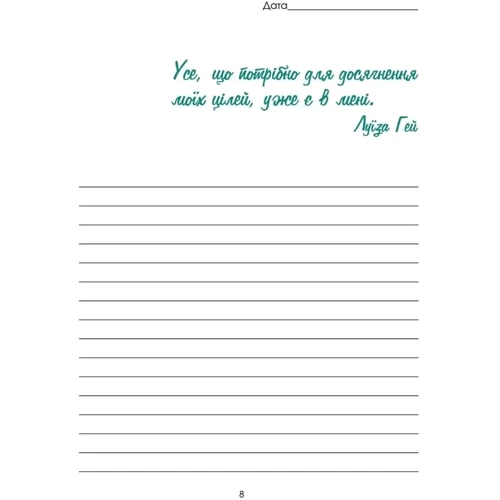 Дата
Усе, що потрібно для досягнення
моїх цілей, уже є в мені.
Луїза Гей
8